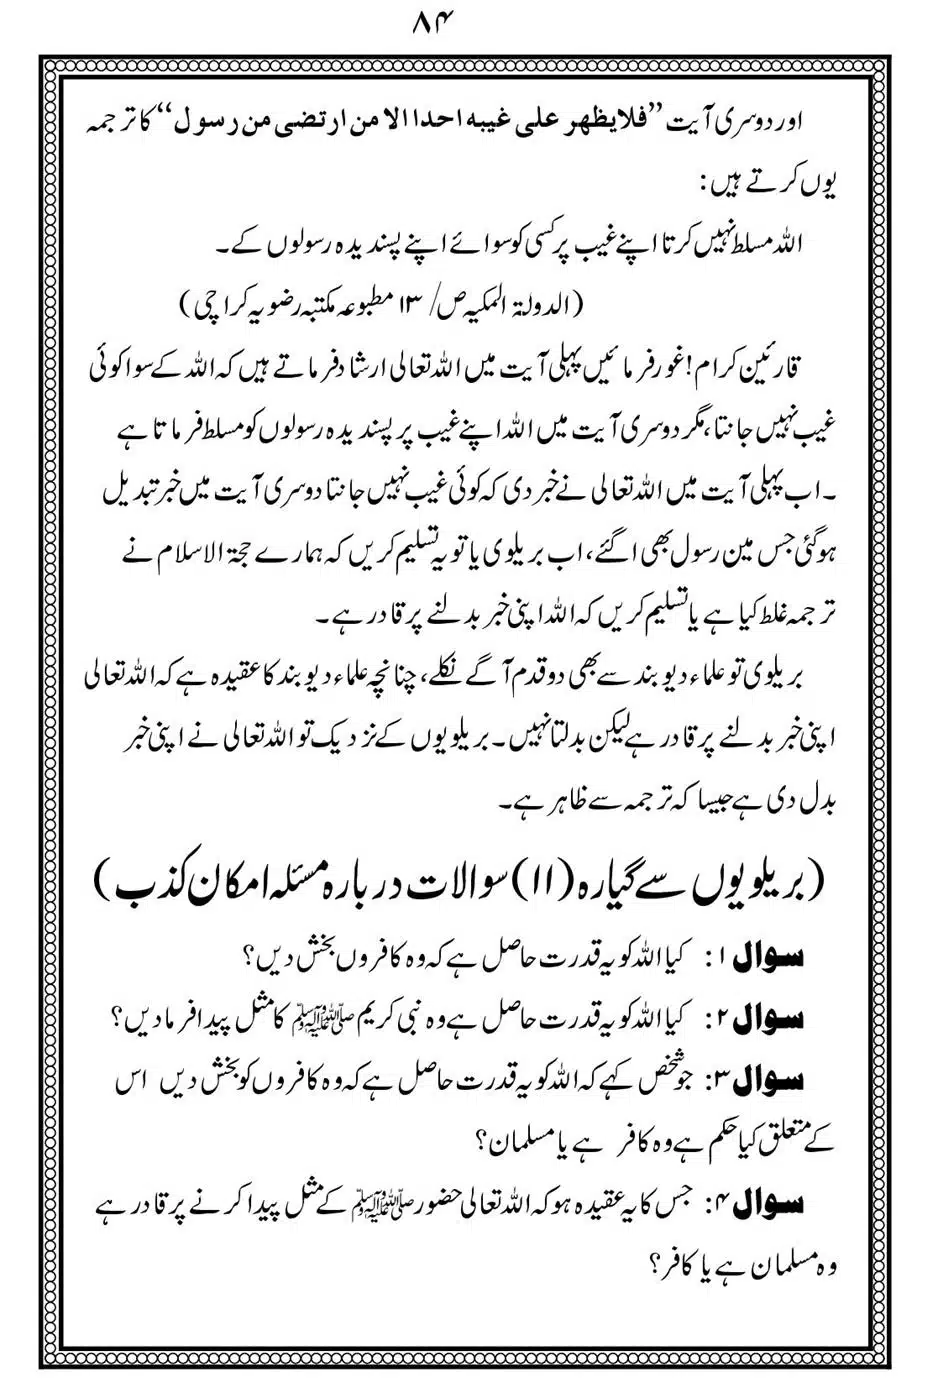 ۸۴
اور دوسری آیت ’’فلایظهر علی غیبه احدا الا من ارتضی من رسول‘‘ کا ترجمہ
یوں کرتے ہیں:
اللہ مسلط نہیں کرتا اپنے غیب پر کسی کو سوائے اپنے پسندیدہ رسولوں کے۔
(الدولۃ المکیہ ص/ ۱۳ مطبوعہ مکتبہ رضویہ کراچی)
قارئین کرام! غور فرمائیں پہلی آیت میں اللہ تعالی ارشاد فرماتے ہیں کہ اللہ کے سوا کوئی
غیب نہیں جانتا، مگر دوسری آیت میں اللہ اپنے غیب پر پسندیدہ رسولوں کو مسلط فرماتا ہے
۔اب پہلی آیت میں اللہ تعالی نے خبر دی کہ کوئی غیب نہیں جانتا دوسری آیت میں خبر تبدیل
ہوگئی جس مین رسول بھی اگئے، اب بریلوی یا تو یہ تسلیم کریں کہ ہمارے حجۃ الاسلام نے
ترجمہ غلط کیا ہے یا تسلیم کریں کہ اللہ اپنی خبر بدلنے پر قادر ہے۔
بریلوی تو علماء دیوبند سے بھی دو قدم آگے نکلے، چنانچہ علماء دیوبند کا عقیدہ ہے کہ اللہ تعالی
اپنی خبر بدلنے پر قادر ہے لیکن بدلتا نہیں۔ بریلویوں کے نزدیک تو اللہ تعالی نے اپنی خبر
بدل دی ہے جیسا کہ ترجمہ سے ظاہر ہے۔
(بریلویوں سے گیارہ (۱۱) سوالات دربارہ مسئلہ امکان کذب)
سوال ۱: کیا اللہ کو یہ قدرت حاصل ہے کہ وہ کافروں بخش دیں؟
سوال ۲: کیا اللہ کو یہ قدرت حاصل ہے وہ نبی کریم ﷺ کا مثل پیدا فرمادیں؟
سوال ۳: جو شخص کہے کہ اللہ کو یہ قدرت حاصل ہے کہ وہ کافروں کو بخش دیں اس
کے متعلق کیا حکم ہے وہ کافر ہے یا مسلمان؟
سوال ۴: جس کا یہ عقیدہ ہو کہ اللہ تعالی حضور ﷺ کے مثل پیدا کرنے پر قادر ہے
وہ مسلمان ہے یا کافر؟